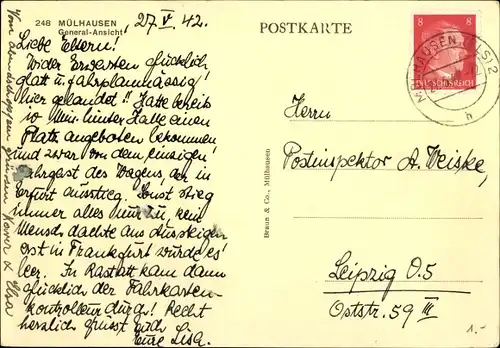 248 MÜLHAUSEN
General-Ansicht
27 V. 42.
Liebe Eltern!
Wider Erwarten glücklich
glatt u. fahrplanmässig!
hier gelandet!! Hatte bereits
10 Min. hinter Halle einen
Platz angeboten bekommen
und zwar von dem einzigen
Fahrgast des Wagens, der in
Erfurt ausstieg. Sonst stieg
immer alles nur zu, kein
Mensch dachte ans Aussteigen
erst in Frankfurt wurde es
leer. In Rastatt kam dann
glücklich der Fahrkarten-
kontrolleur durch! Recht
herzlich grüsst Euch
Eure Lisa.
Vom
Elsa
Braun & Co., Mülhausen
POSTKARTE
8 8
DEUTSCHES REICH
MÜLHAUSEN (ELS) 2
h
Herrn
Postinspektor A. Weiske,
Leipzig O.5
Oststr. 59 III
1.-